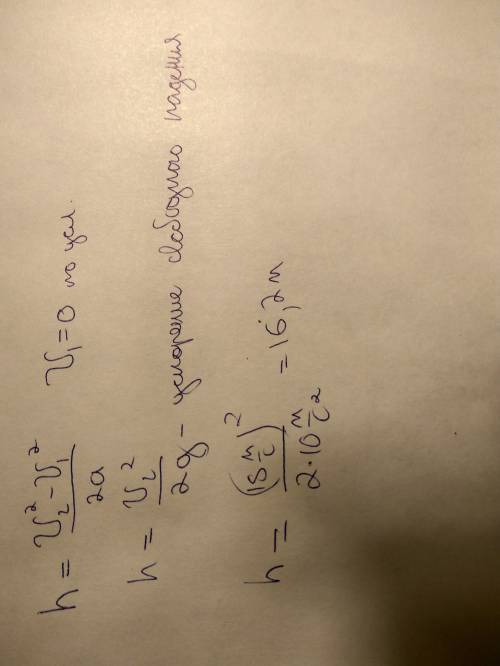 h = (υ₂² - υ₁²)/2a υ₁ = 0 по усл.
h = υ₂²/2g - ускорение свободного падения
h = (18 м/с)²/(2·10 м/с²) = 16,2 м